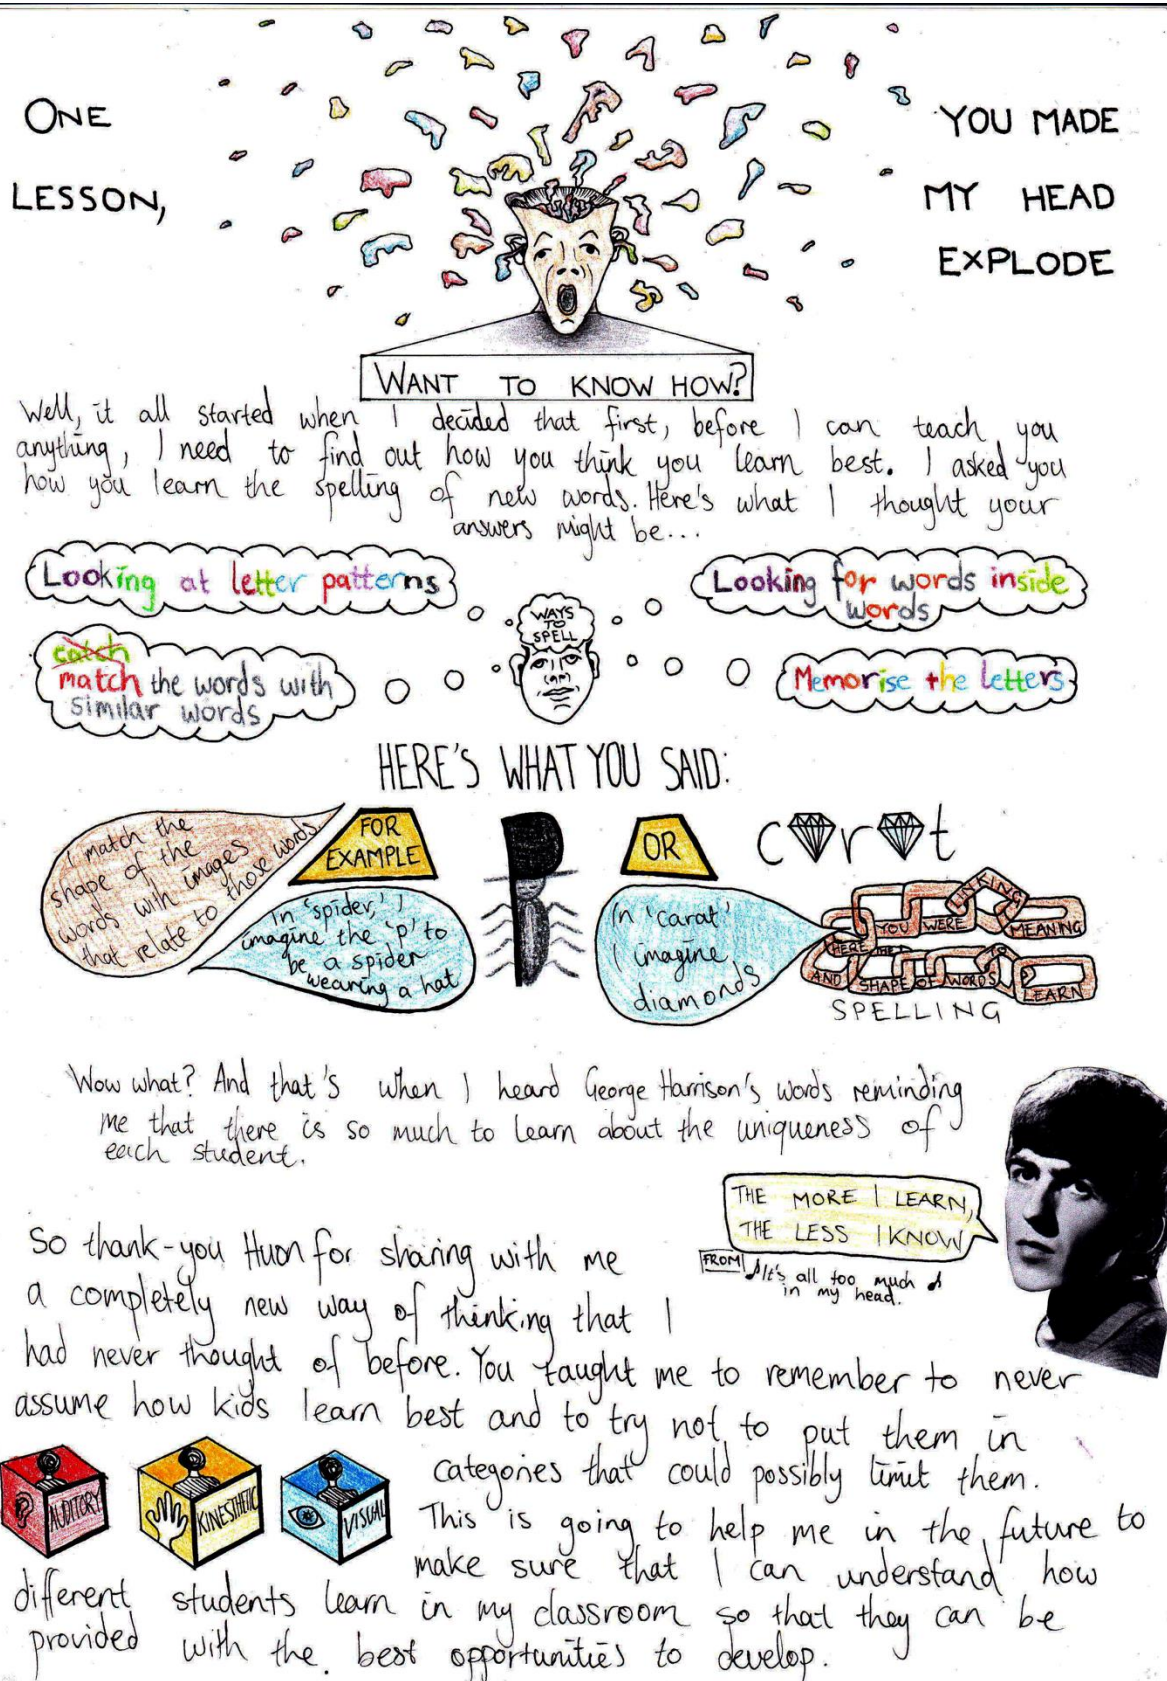 ONE
LESSON,
YOU MADE
MY HEAD
EXPLODE
WANT TO KNOW HOW?
Well, it all started when I decided that first, before I can teach you
anything, I need to find out how you think you learn best. I asked you
how you learn the spelling of new words. Here's what I thought your
answers might be...
Looking at letter patterns
Looking for words inside
words
WAYS
TO
SPELL
catch
match the words with
similar words
Memorise the letters
HERE'S WHAT YOU SAID:
I match the
shape of the
words with images
that relate to those words
FOR
EXAMPLE
In 'spider,' I
imagine the 'p' to
be a spider
wearing a hat
OR
In 'carat'
I imagine
diamonds
c r t
YOU WERE LINKING MEANING
HERE THE
AND SHAPE OF WORDS TO LEARN
SPELLING
Wow what? And that's when I heard George Harrison's words reminding
me that there is so much to learn about the uniqueness of
each student.
THE MORE I LEARN,
THE LESS I KNOW
FROM It's all too much
in my head.
So thank-you Huon for sharing with me
a completely new way of thinking that I
had never thought of before. You taught me to remember to never
assume how kids learn best and to try not to put them in
categories that could possibly limit them.
AUDITORY
KINESTHETIC
VISUAL
This is going to help me in the future to
make sure that I can understand how
different students learn in my classroom so that they can be
provided with the best opportunities to develop.